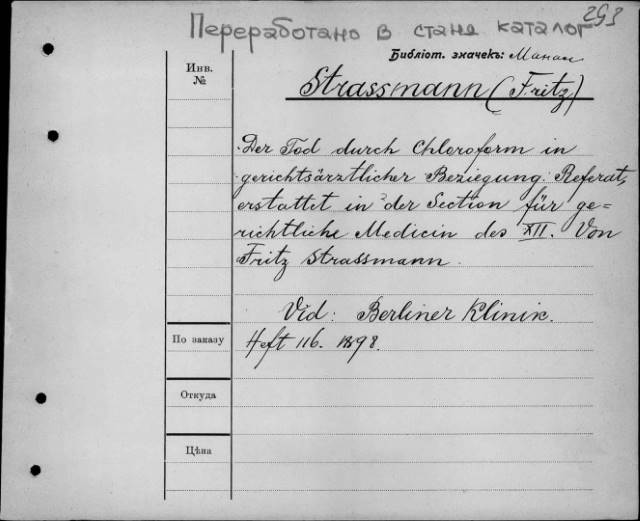 293
Переработано в станд каталог
Библіот. значекъ:
Инв.
№
Strassmann (Fritz)
Der Tod durch Chloroform in
gerichtsärztlicher Beziegung. Referat,
erstattet in der Section für ge=
richtliche Medicin des XII. Von
Fritz Strassmann.
Vid: Berliner Klinik.
По заказу
Heft 116. 1898.
Откуда
Цѣна